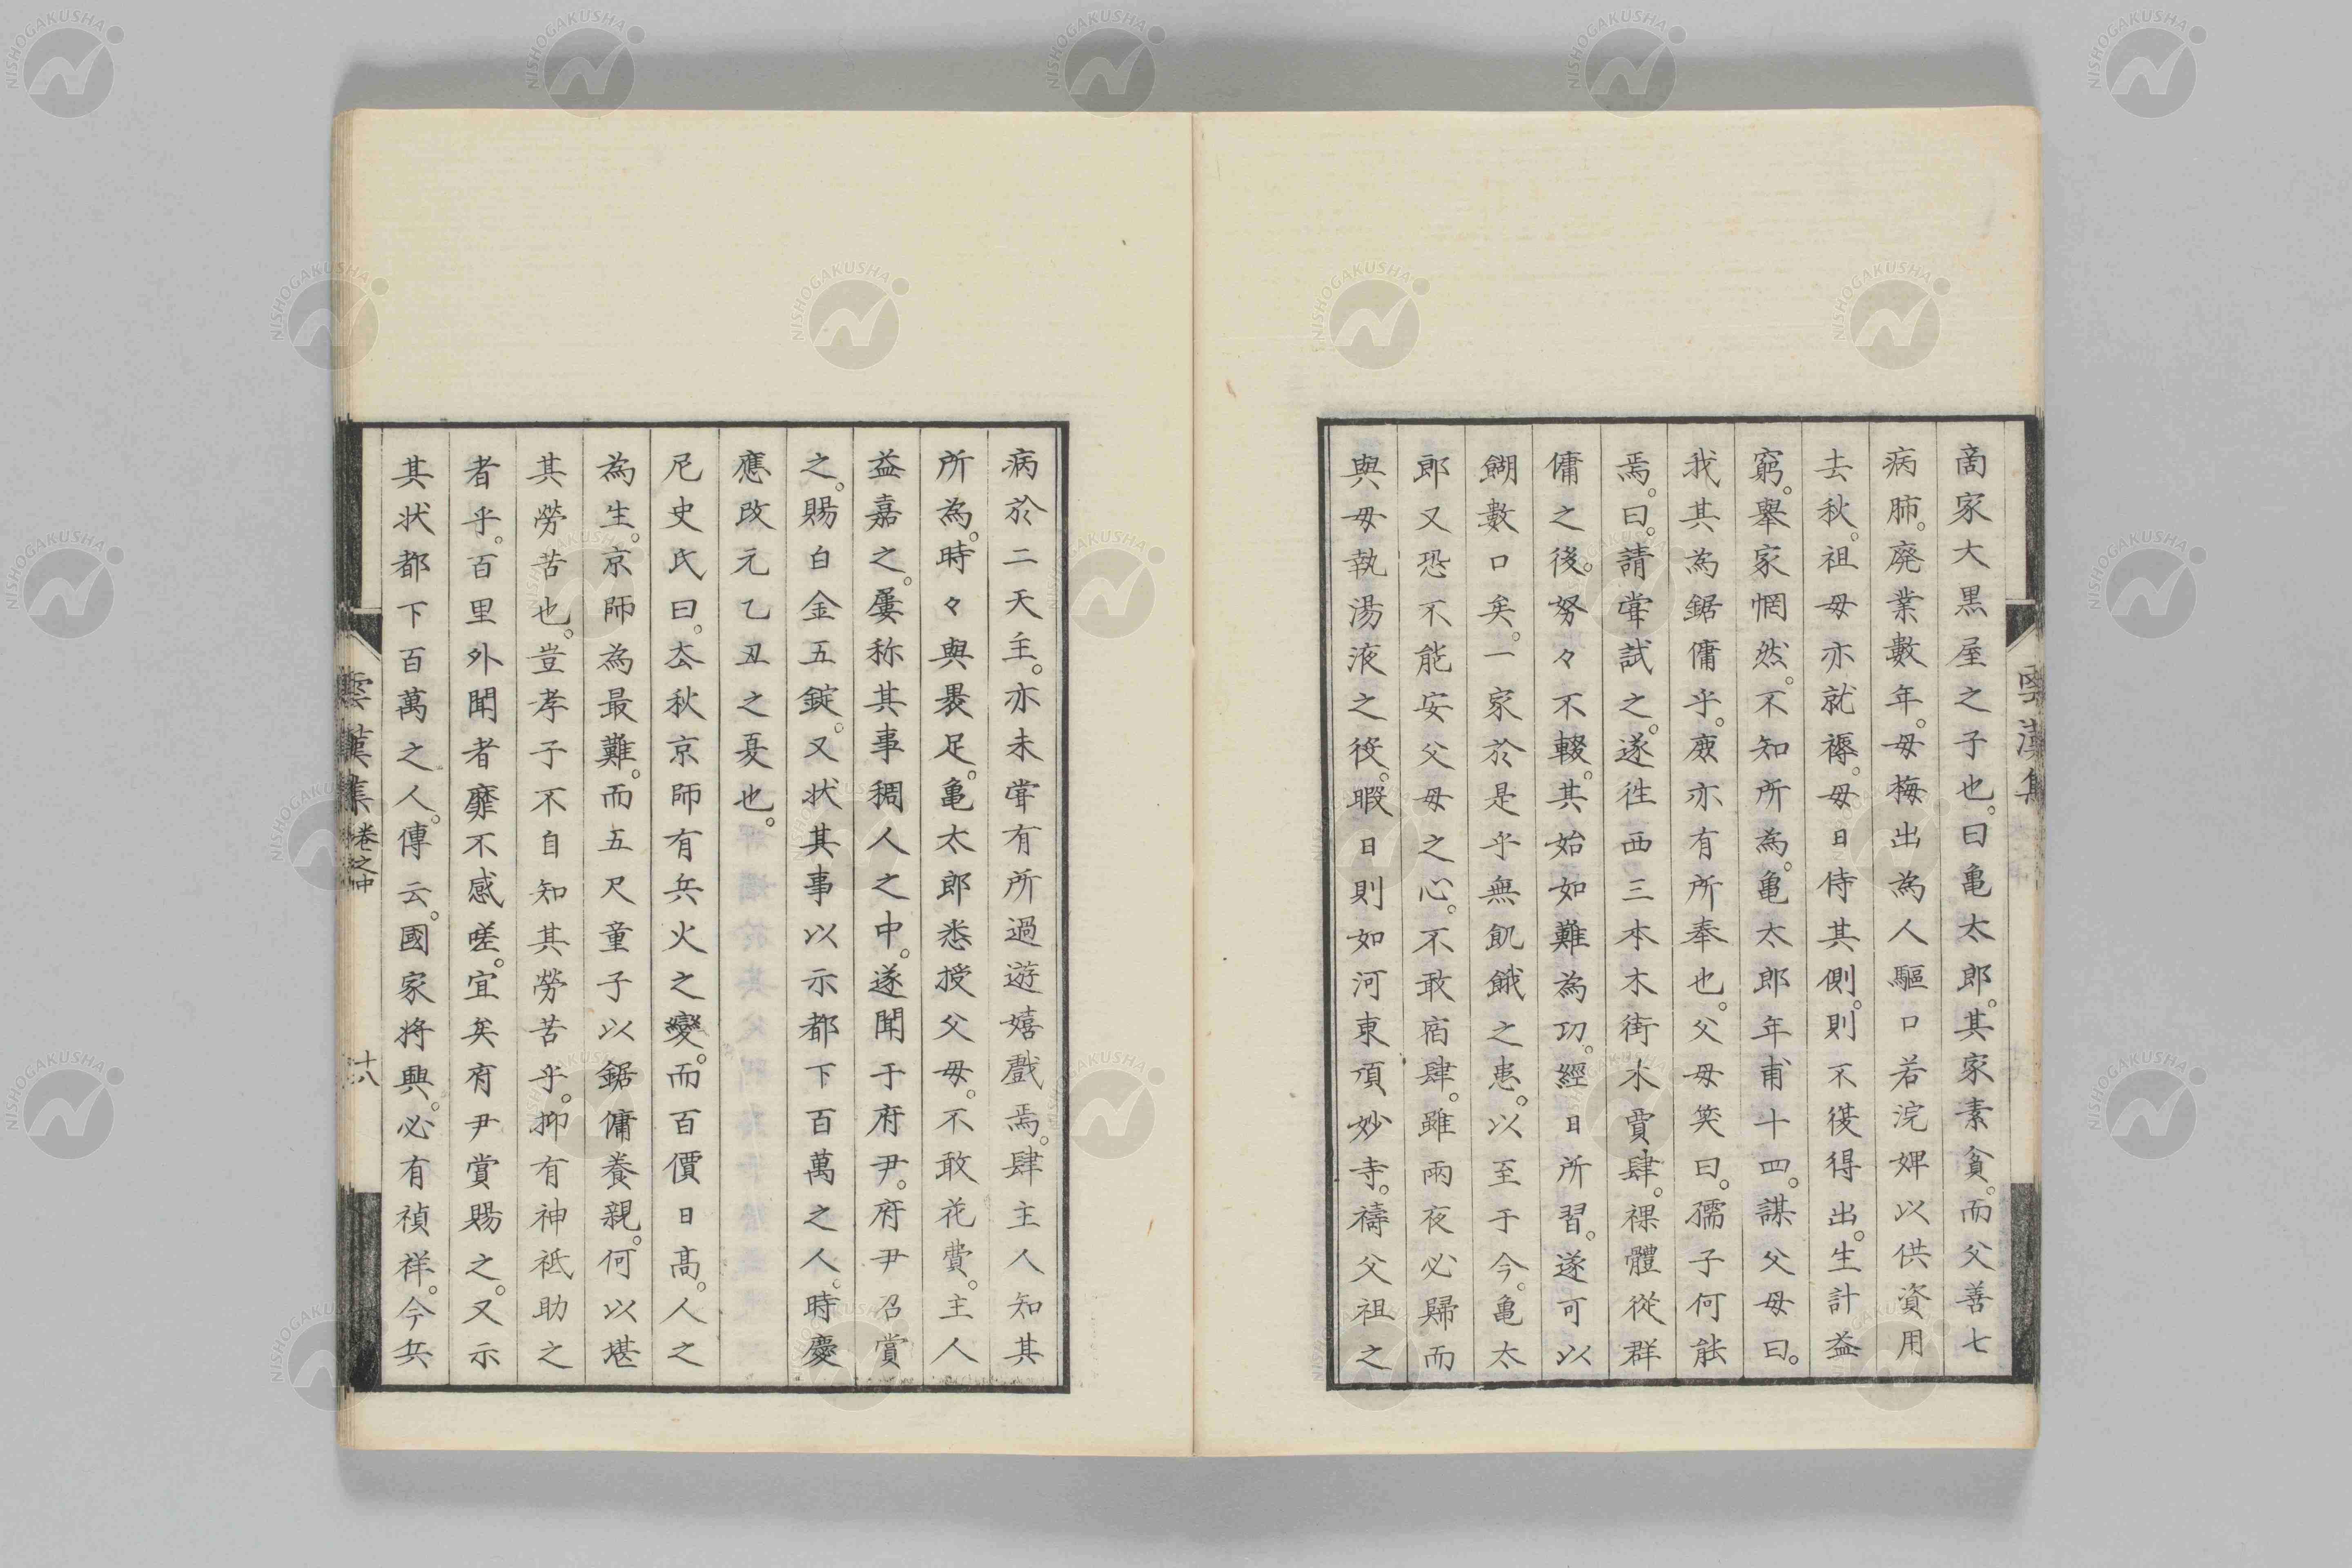 商家大黒屋之子也。曰亀太郎。其家素貧。而父善七
病肺。廃業數年。毋梅出為人驅口若浣婢以供資用
去秋。祖毋亦就褥。毋日侍其側。則不復得出。生計益
窮。舉家惘然。不知所為。亀太郎年甫十四。謀父毋曰。
我其為鋸傭乎。庶亦有所奉也。父毋笑曰。孺子何能
焉。曰。請甞試之。遂徃西三本木街木賈肆。裸體從群
傭之後。努々不輟。其始如難為功。經日所習。遂可以
餬數口矣。一家於是乎無飢餓之患。以至于今。亀太
郎又恐不能安父毋之心。不敢宿肆。雖雨夜必歸而
與毋執湯液之役。暇日則如河東頂妙寺。禱父祖之
病於二天主。亦未甞有所過遊嬉戲焉。肆主人知其
所為。時々與褁足。亀太郎悉授父毋。不敢花費。主人
益嘉之。屢称其事稠人之中。遂聞于府尹。府尹召賞
之。賜白金五錠。又状其事以示都下百萬之人。時慶
應改元乙丑之夏也。
尼史氏曰。去秋京師有兵火之變。而百價日高。人之
為生。京師為最難。而五尺童子以鋸傭養親。何以堪
其勞苦也。豈孝子不自知其勞苦乎。抑有神祗助之
者乎。百里外聞者靡不感嗟。宜矣府尹賞賜之。又示
其状都下百萬之人。傳云。國家将興。必有禎祥。今兵
雲漢集
雲漢集 卷之中 十八
NISHOGAKUSHA